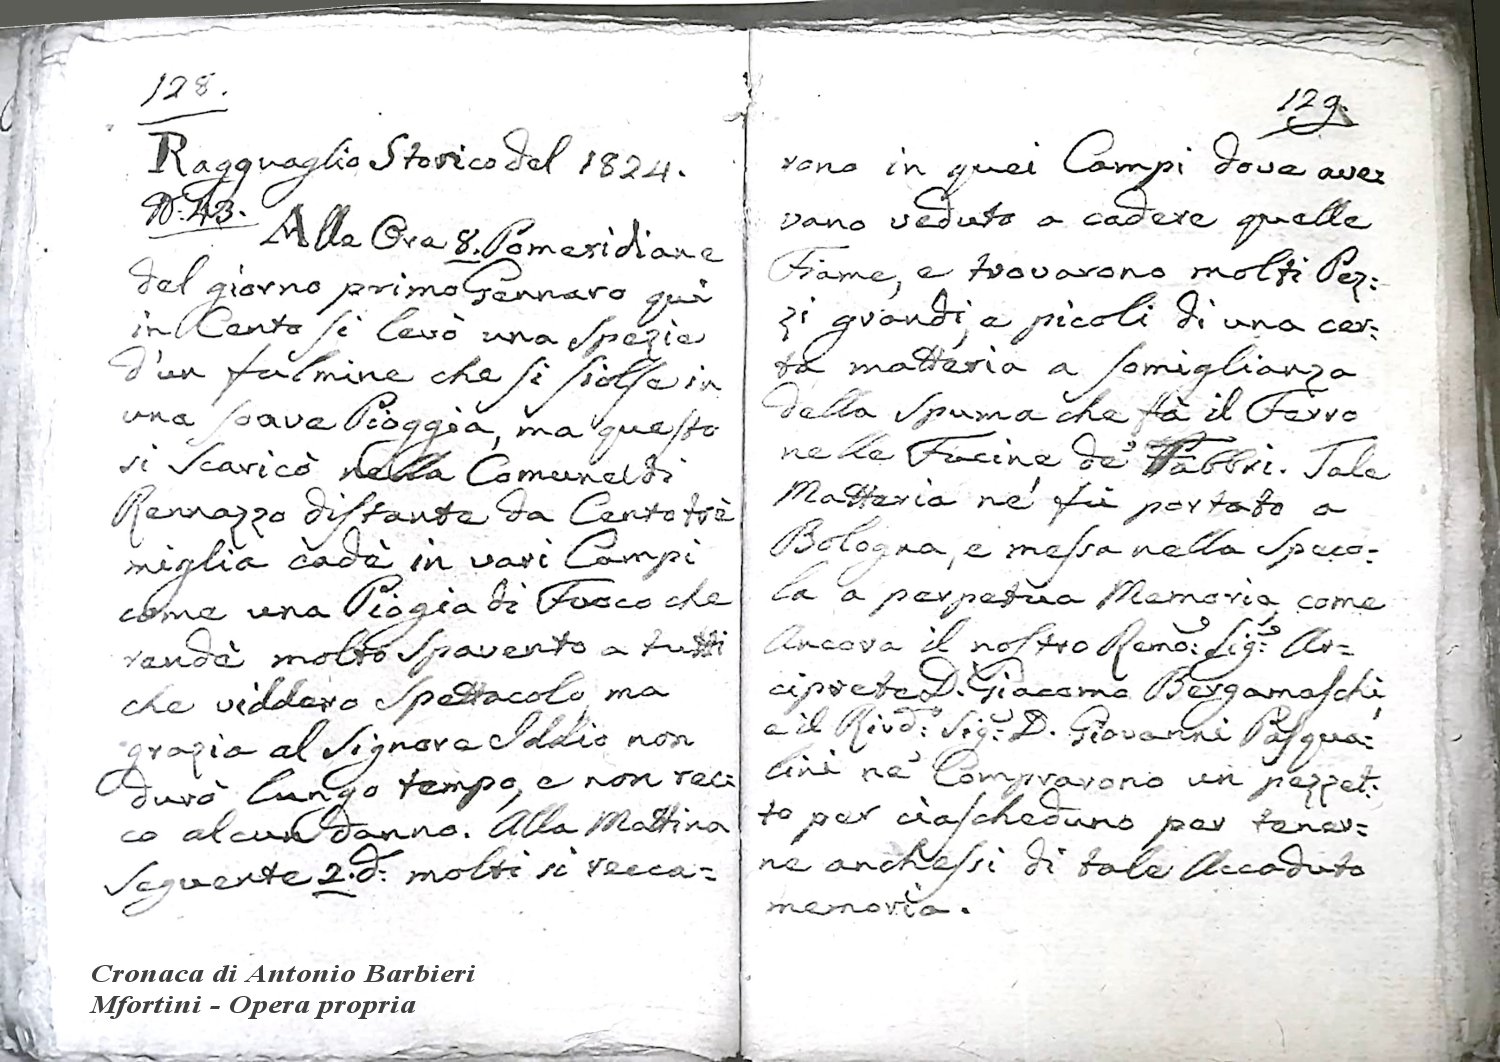 128.
Ragguaglio Storico del 1824.
N.º 43.
Alle Ore 8. Pomeridiane
del giorno primo Gennaro quì
in Cento si levò una spezie
d'un fulmine che si siolse in
una soave Pioggia, ma questo
si scaricò nella Comune di
Rennazzo distante da Cento trè
miglia cadè in vari Campi
come una Piogia di Fuoco che
rendè molto spavento a tutti
che viddero spettacolo, ma
grazia al Signore Iddio non
durò lungo tempo, e non reci=
co alcun danno. Alla Mattina
seguente 2. d.º molti si recca=
129.
rono in quei Campi dove avez
vano veduto a cadere quelle
Fiame, e trovarono molti Pez=
zi grandi, e picoli di una cer=
ta matteria a somiglianza
della spuma che fà il Ferro
nelle Fucine de' Fabbri. Tale
Matteria ne' fù portato a
Bologna, e messa nella speco=
la a perpetua Memoria, come
Ancora il nostro Remõ: Sig:º Ar=
ciprete D. Giacomo Bergamaschi,
e il Rivd:º Sig:º D. Giovanni Pasqua=
lini ne' Comprarono un pezzet=
to per ciascheduno per tener=
ne anchessi di tale Accaduto
memoria.
Cronaca di Antonio Barbieri
Mfortini - Opera propria